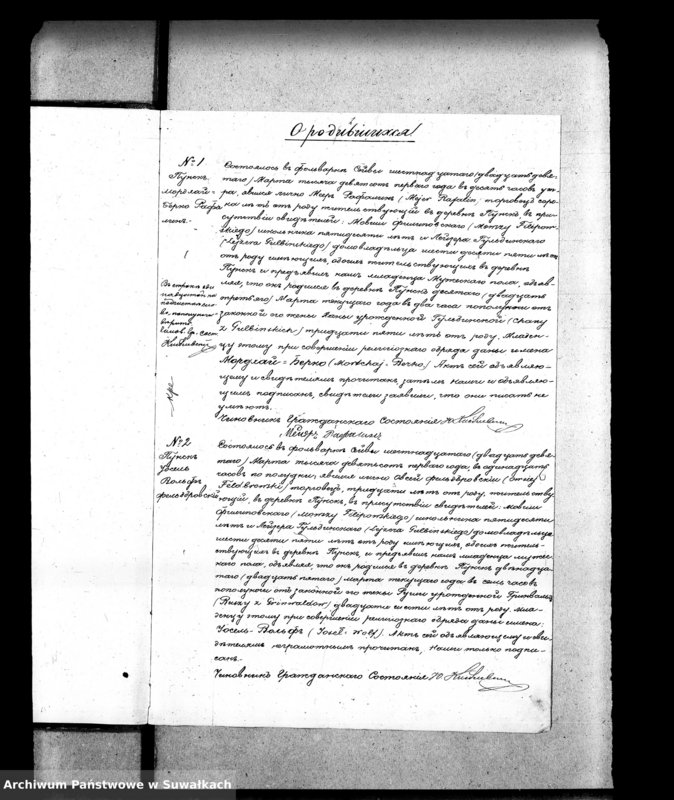 О родившихся
№ 1
Пунскъ.
Мордхай=
Берко Рафа
линъ.
Состоялось въ фольварке Ейвы шестнадцатаго /двадцать девя-
таго/ Марта тысяча девятсотъ перваго года въ десять часовъ ут-
ра, явился лично Меръ Рафалинъ / Mejer Rafalin, торговецъ соро-
ка лѣтъ отъ роду жительствующій въ деревнѣ Пунскъ въ при-
сутствіи свидѣтелей: Мовши Филиповскаго / Motzky Filipow-
skiego / школьника пятидесяти лѣтъ и Лейзера Гульбинскаго
(Lejzera Gulbinskiego) домовладѣльца шести десяти пяти лѣтъ
отъ роду имѣющихъ, обоихъ жительствующихъ въ деревнѣ
Пунскъ и предъявилъ намъ младенца Мужескаго пола, объяв-
ляя, что онъ родился въ деревнѣ Пунскъ десятаго / двадцать
третьяго/ Марта текущаго года въ два часа пополудни отъ
законной его жены Ханы урожденной Гульбинской (Chany
z Gulbinskich) тридцати пяти лѣтъ отъ роду. Младен-
цу этому при совершеніи религіознаго обряда даны имена
Мордхай=Берко (Mortchaj-Berko) Актъ сей объявляю-
щему и свидѣтелямъ прочитанъ, затѣмъ нами и объявляю-
щимъ подписанъ, свидѣтели заявили, что они писать не
умѣютъ.
Чиновникъ Гражданскаго Состоянія
Мейеръ Рафалинъ
№ 2
Пунскъ
Іосель
Вольфъ
Фельдбровскій
Состоялось въ фольварке Ейвы шестнадцатаго /двадцать девя-
таго/ Марта тысяча девятсотъ перваго года, въ одинадцать
часовъ по полудни, явился лично Овсей Фельдбровскій
Feldbrowski/ торговецъ, тридцати лѣтъ отъ роду, жительству-
ющій въ деревнѣ Пунскъ, въ присутствіи свидѣтелей: Мовши
Филиповскаго / Motzky Filipowskiego / школьника пятидесяти
лѣтъ и Лейзера Гульбинскаго / Lejzera Gulbinskiego/ домовладѣльца
шести десяти пяти лѣтъ отъ роду имѣющихъ, обоихъ житель-
ствующихъ въ деревнѣ Пунскъ, и предъявилъ намъ младенца мужес-
каго пола, объявляя, что онъ родился въ деревнѣ Пунскъ двѣнадца-
таго / двадцать пятаго / марта текущаго года въ семь часовъ
пополуночи отъ законной его жены Рушы урожденной Гринвальдъ
(Ruszy z Grinwaldow) двадцати шести лѣтъ отъ роду. Мла-
денцу этому при совершеніи религіознаго обряда даны имена
Іосель-Вольфъ ( Josel-Wolf). Актъ сей объявляющему и сви-
дѣтелямъ неграмотнымъ прочитанъ, Нами только подпи-
санъ.
Чиновникъ Гражданскаго Состоянія
Archiwum Państwowe w Suwałkach